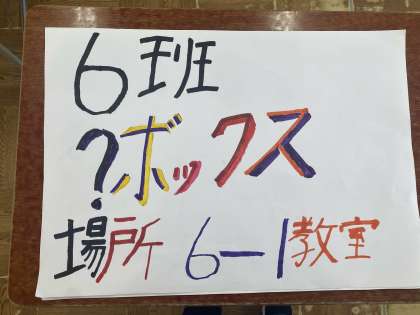 6班
?ボックス
場所 6-1教室